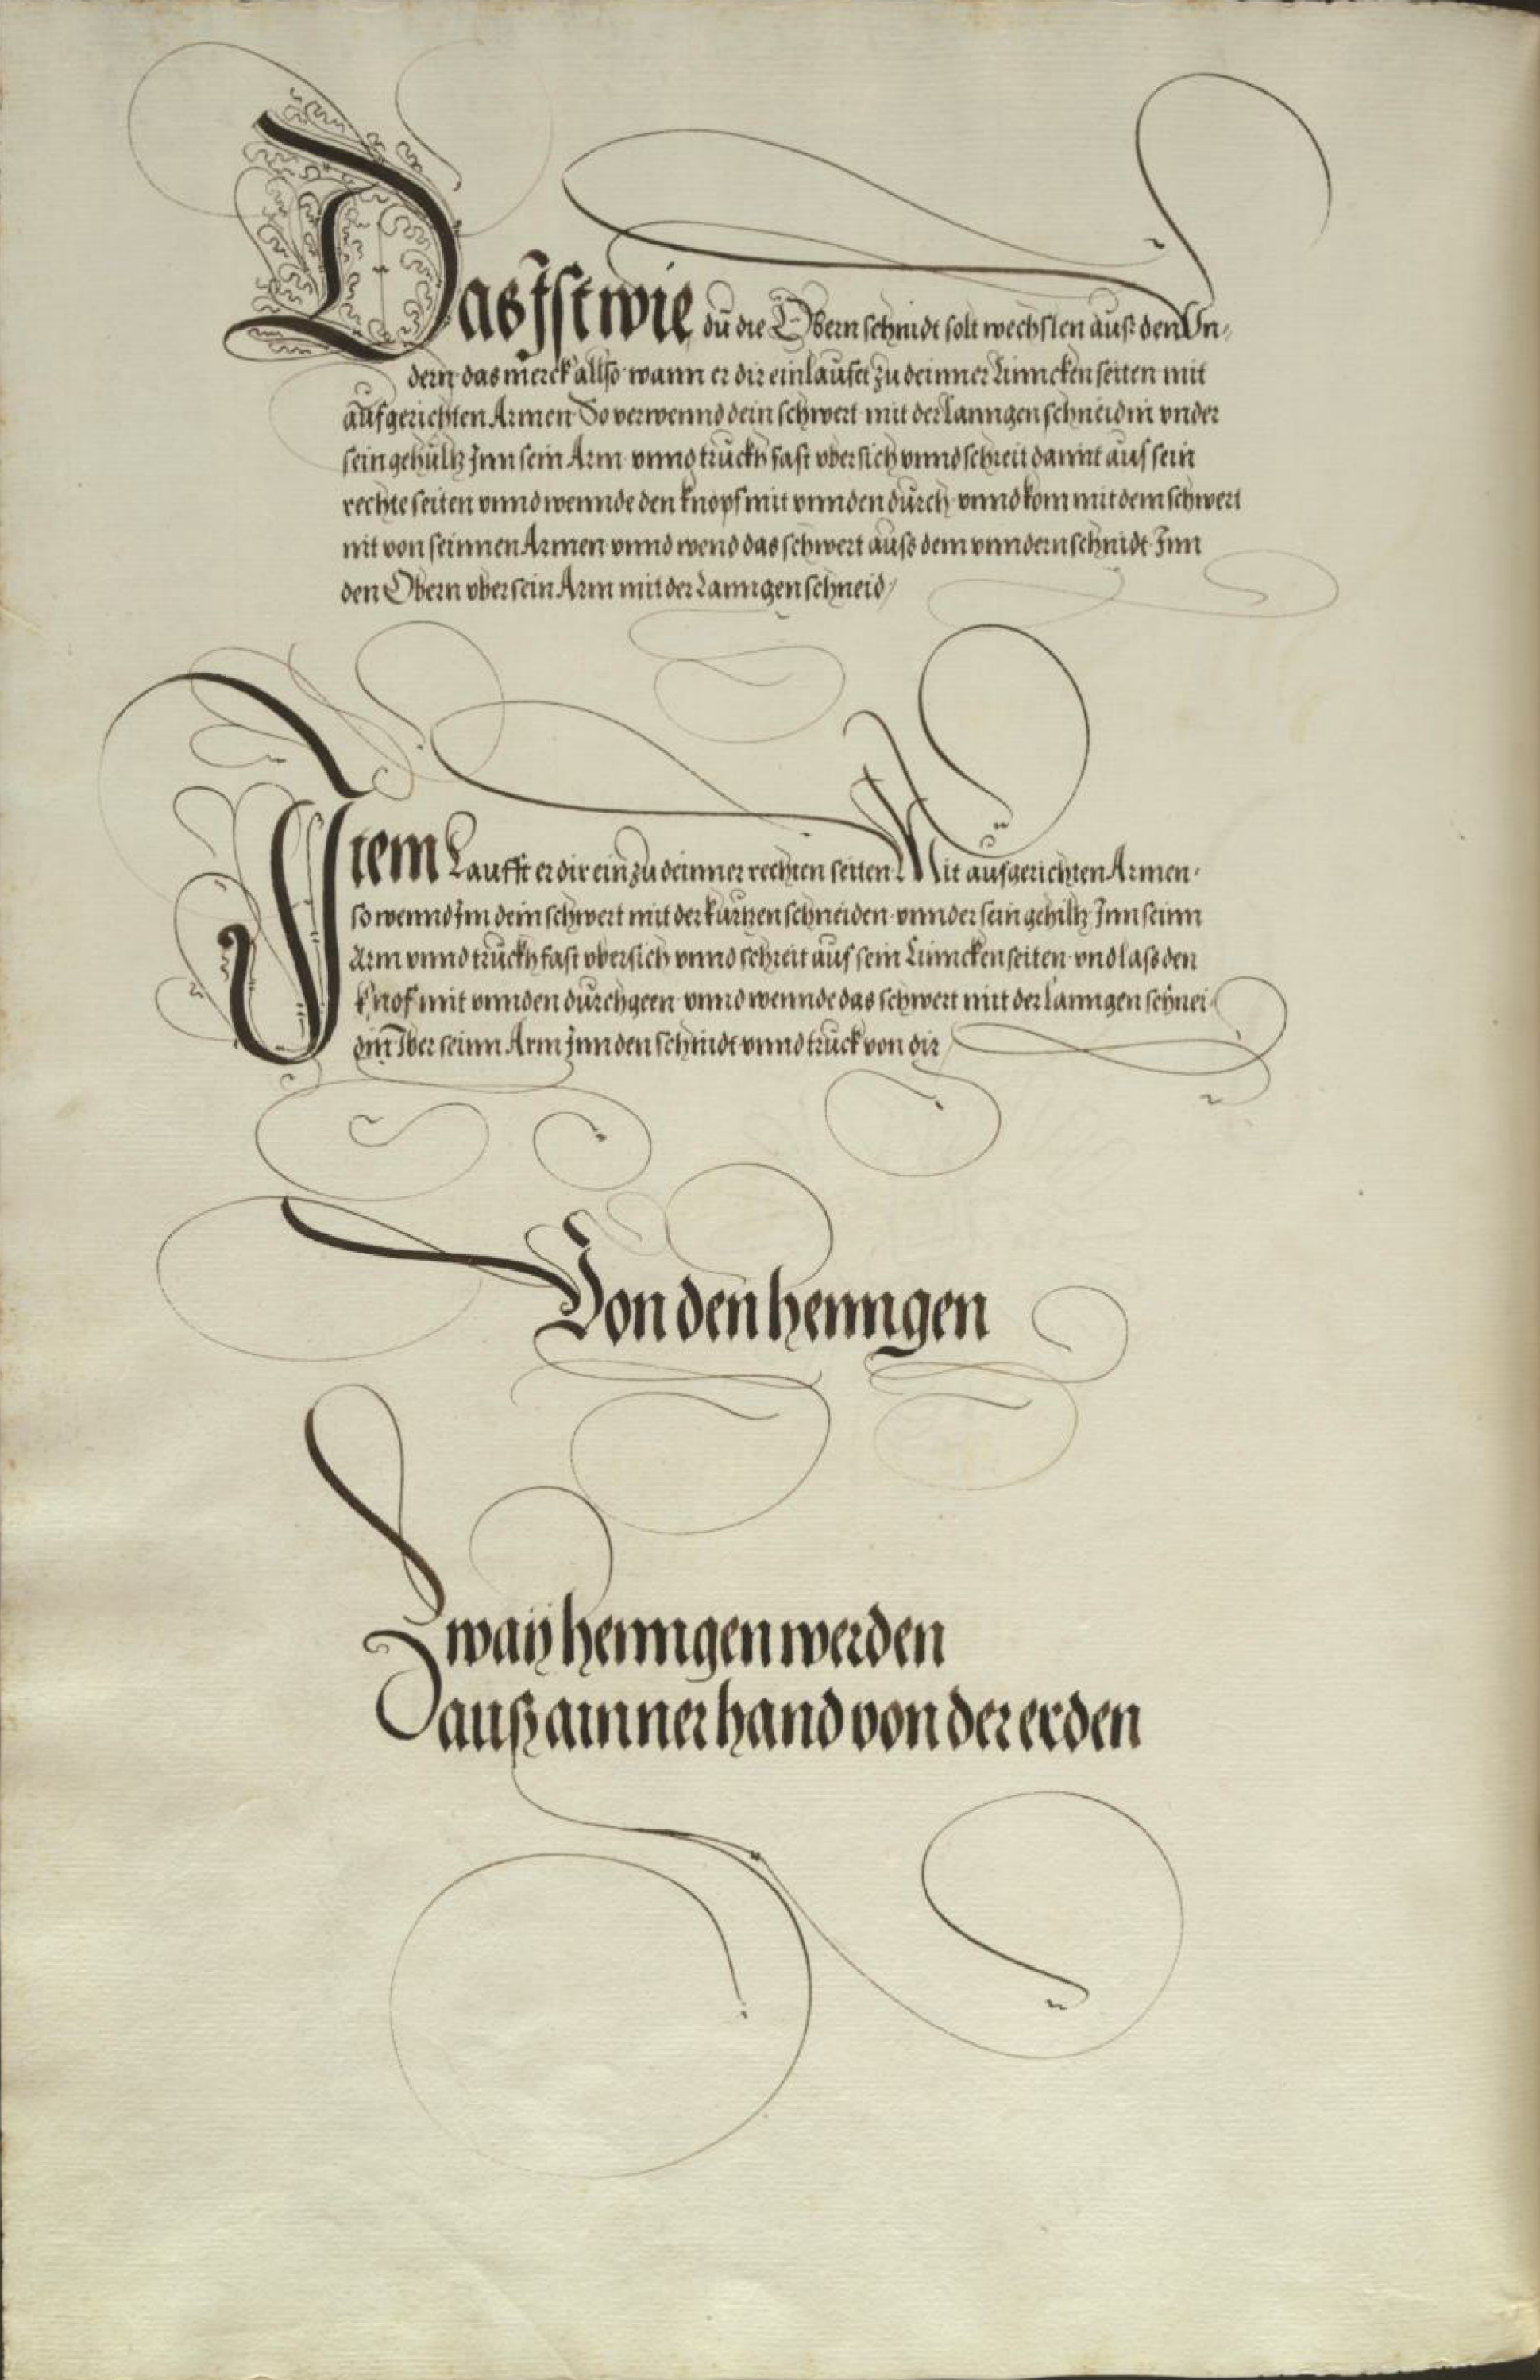 Das Ist wie du die Obern schnidt solt wechslen auß den Un-
dern das merck allso wann er dir einlaufet zu deinner Linncken seiten mit
aufgerichten Armen So verwennd dein schwert mit der lanngen schneidin vnder
sein gehultz Inn sein Arm vnnd truckh fast vbersich vnnd schreit damit auf sein
rechte seiten vnnd wennde den knopf mit vnnden durch vnnd kom mit dem schwert
nit von seinnen Armen vnnd wend das schwert auß dem vnndern schnidt Inn
den Obern vber sein Arm mit der Lanngen schneid
Item Laufft er dir ein zu deinner rechten seitten Mit aufgerichten Armen
so wennd Im dein schwert mit der kurtzen schneiden vnnder sein gehiltz Inn seinn
Arm vnnd truckh fast vbersich vnnd schreit auf sein Linncken seiten vnd lass den
knof mit vnnden durchgeen vnnd wennde das schwert mit der lanngen schnei
din Iber seinn Arm Inn den schnidt vnnd truck von dir
Von den henngen
Zwaÿ henngen werden
auß ainner hand von der erden